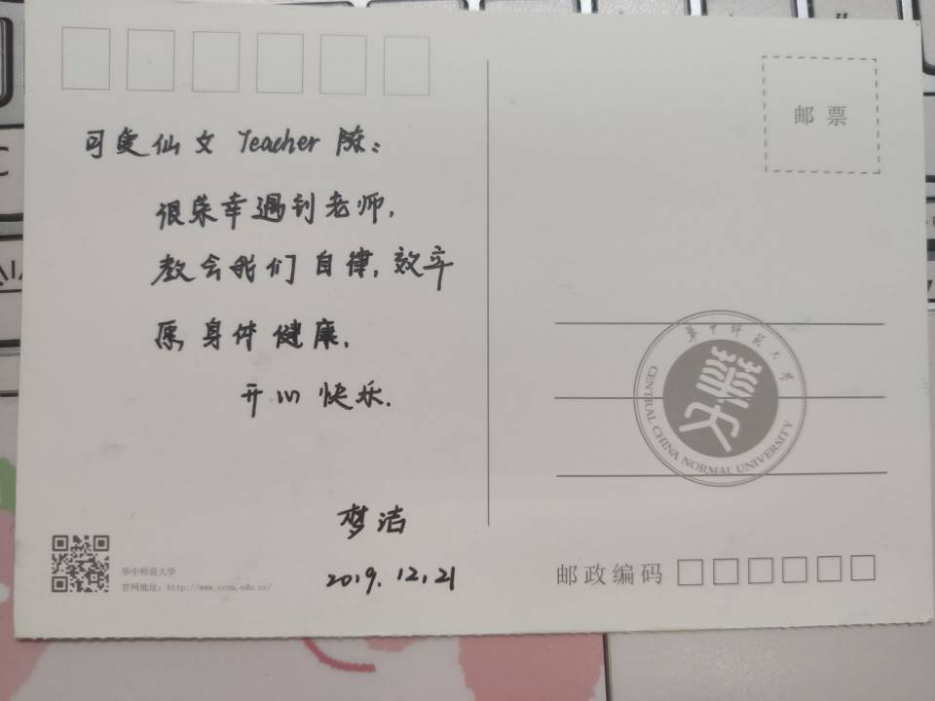 可爱仙女 Teacher 陈：
很荣幸遇到老师，
教会我们自律，效率
愿身体健康，
开心快乐.
梦洁
2019.12.21
华中师范大学
官网地址：http://www.ccnu.edu.cn/
邮票
华中师范大学
CENTRAL CHINA NORMAL UNIVERSITY
邮政编码